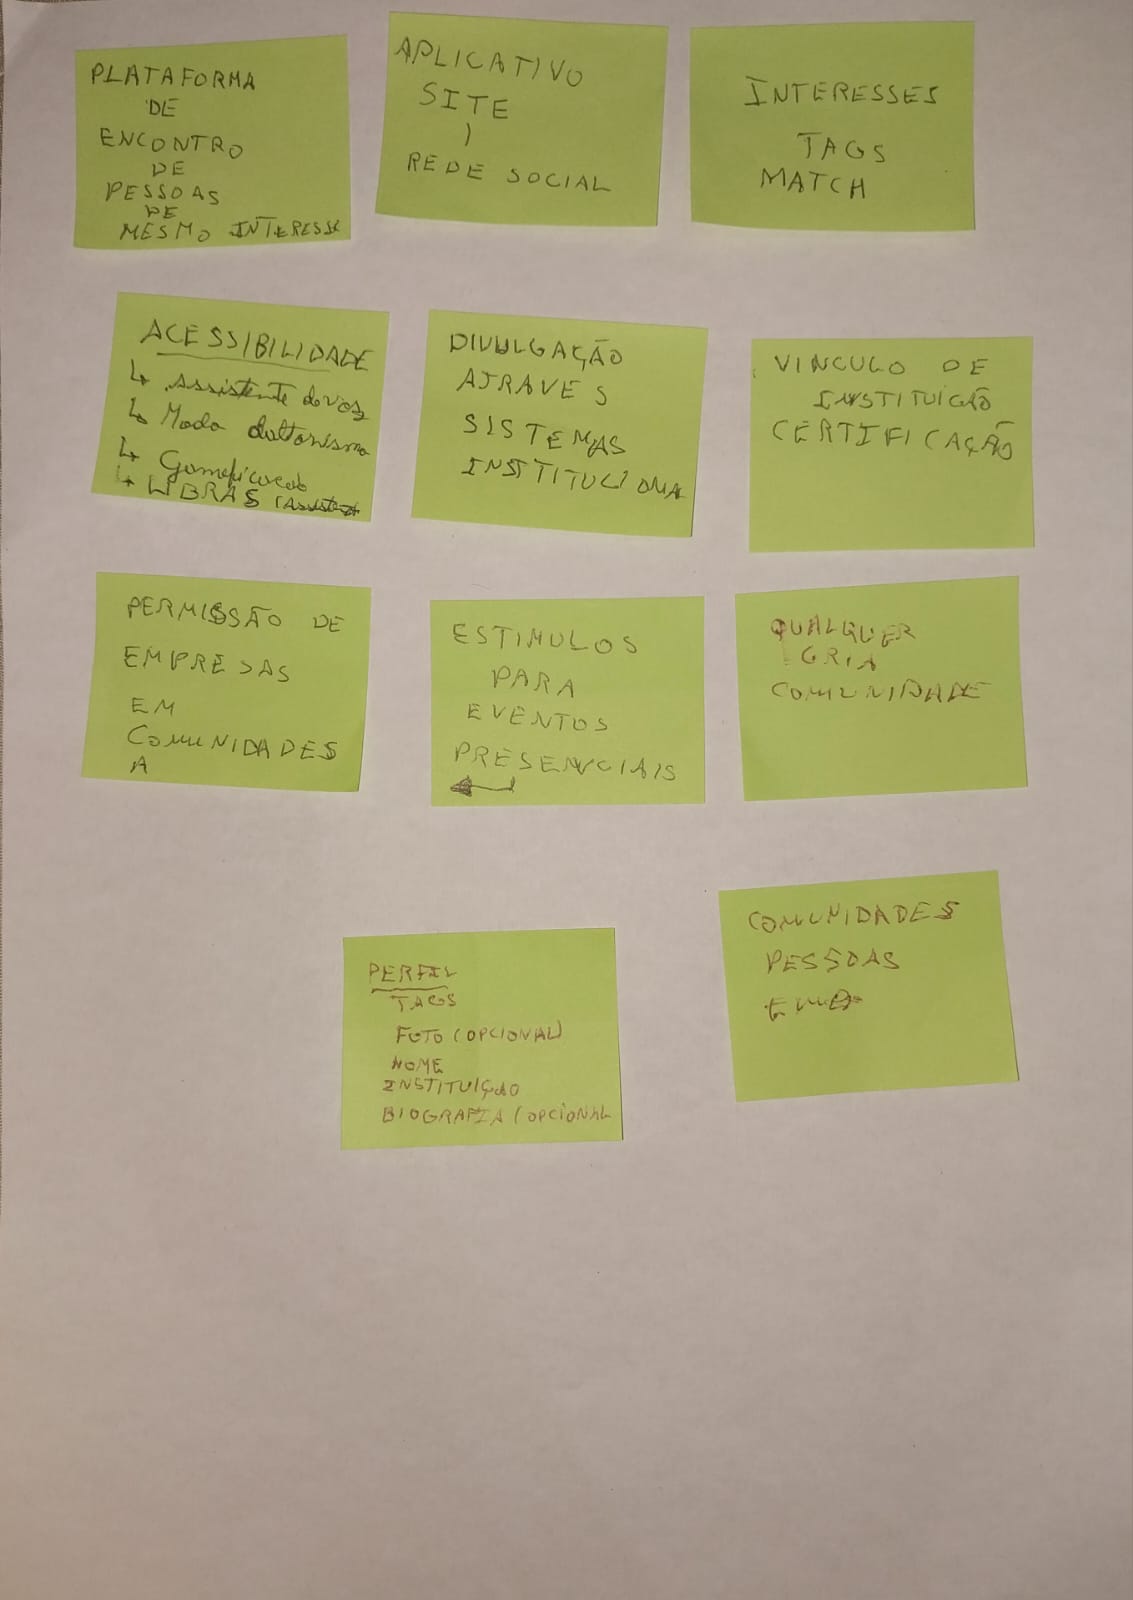 PLATAFORMA
DE
ENCONTRO
DE
PESSOAS
DE
MESMO INTERESSE
APLICATIVO
SITE
)
REDE SOCIAL
INTERESSES
TAGS
MATCH
ACESSIBILIDADE
↳ Assistente de voz
↳ Modo daltonismo
↳ Gameficacao
↳ LIBRAS (Assistent
DIVULGAÇÃO
ATRAVES
SISTEMAS
INSTITUCIONAL
VINCULO DE
INSTITUIÇÃO
CERTIFICAÇÃO
PERMISSÃO DE
EMPRESAS
EM
COMUNIDADES
A
ESTIMULOS
PARA
EVENTOS
PRESENCIAIS
QUALQUER
CRIA
COMUNIDADE
PERFIL
TAGS
FOTO (OPCIONAL)
NOME
INSTITUIÇÃO
BIOGRAFIA (OPCIONAL
COMUNIDADES
PESSOAS